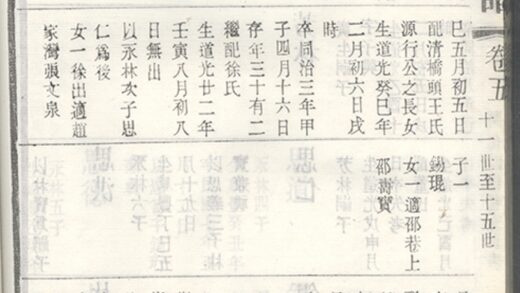 卷五
十一世至十五世
巳五月初五日
配清橋頭王氏
源行公之長女
生道光癸巳年
二月初六日戌
時
卒同治三年甲
子四月十六日
存年三十有二
繼配徐氏
生道光廿二年
壬寅八月初八
日無出
以永林次子思
仁為後
女一徐出適趙
家灣張文泉
子一
錫琨
女一適邵巷上
邵壽寶